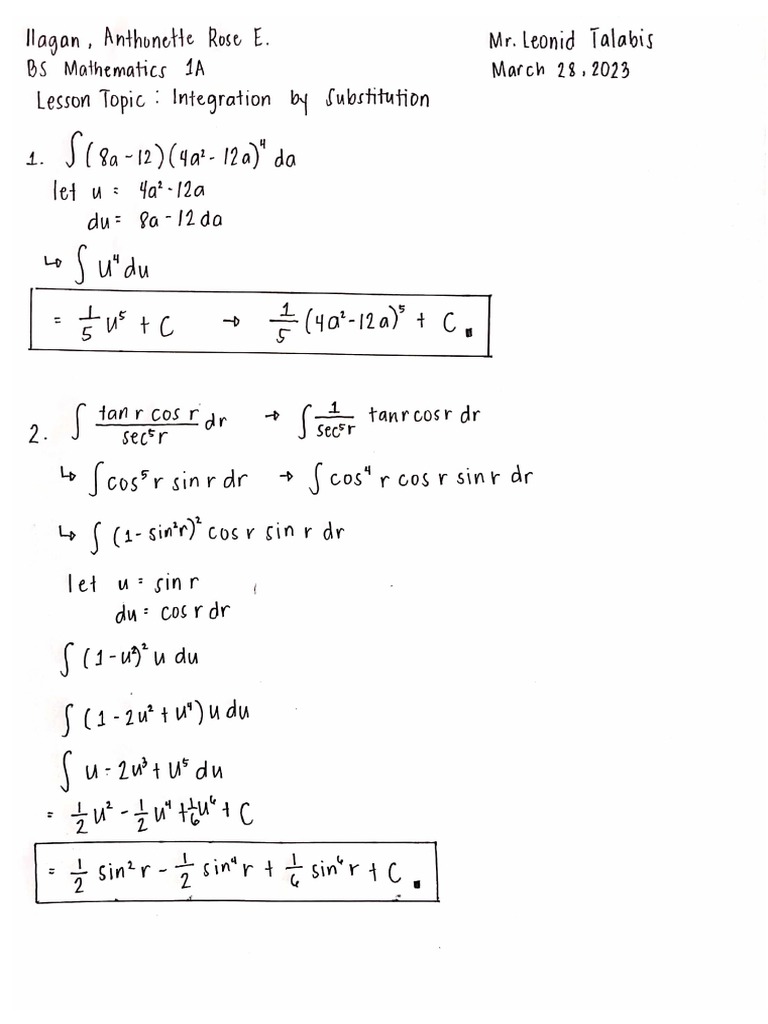 Ilagan, Anthonette Rose E. Mr. Leonid Talabis
BS Mathematics 1A March 28, 2023
Lesson Topic: Integration by Substitution
1. ∫(8a-12)(4a²-12a)⁴ da
let u = 4a²-12a
du = 8a-12 da
↳ ∫ u⁴ du
= 1/5 u⁵ + C → 1/5 (4a²-12a)⁵ + C ▪
2. ∫ (tan r cos r)/(sec⁵r) dr → ∫ 1/(sec⁵r) tan r cos r dr
↳ ∫ cos⁵ r sin r dr → ∫ cos⁴ r cos r sin r dr
↳ ∫ (1-sin²r)² cos r sin r dr
let u = sin r
du = cos r dr
∫ (1-u²)² u du
∫ (1-2u²+u⁴) u du
∫ u - 2u³ + u⁵ du
= 1/2 u² - 1/2 u⁴ + 1/6 u⁶ + C
= 1/2 sin²r - 1/2 sin⁴r + 1/6 sin⁶r + C ▪